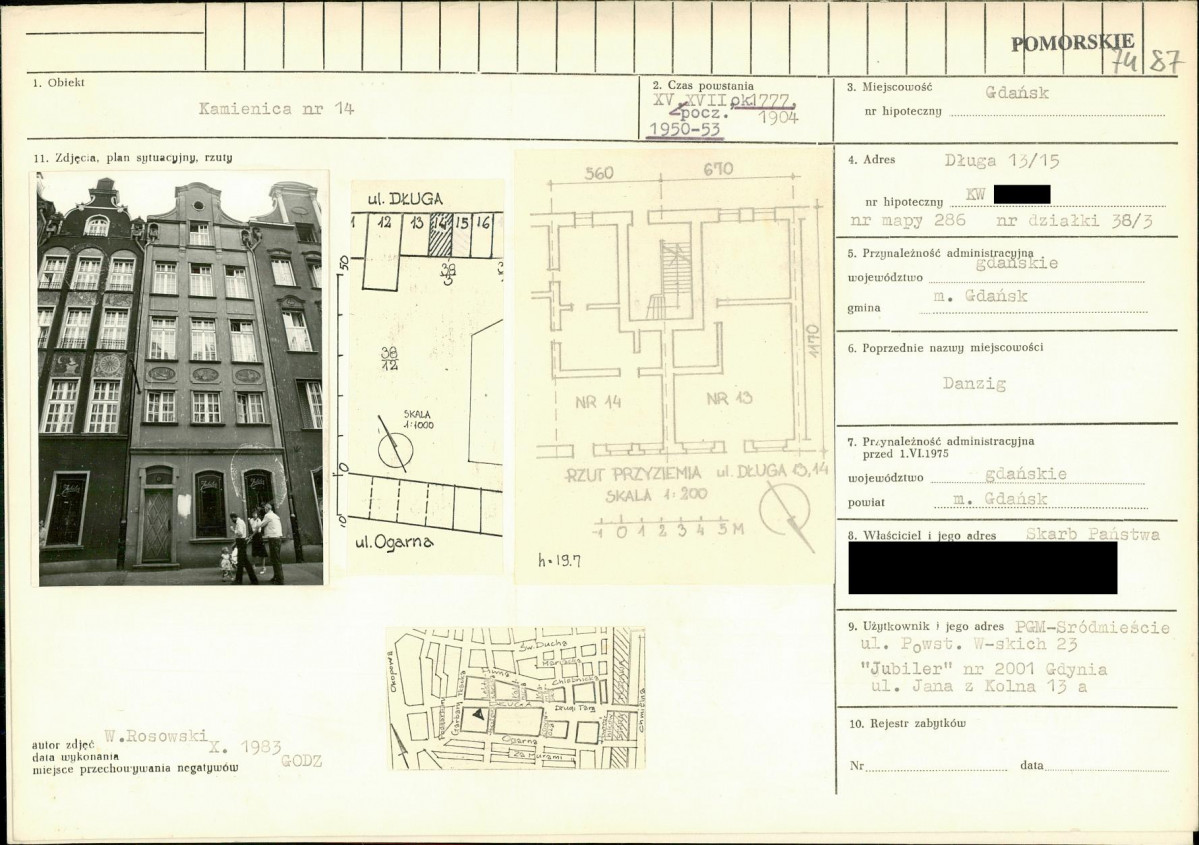 POMORSKIE
74 87
1. Obiekt
Kamienica nr 14
2. Czas powstania
XV XVII, ok1777,
pocz. 1904
1950-53
3. Miejscowość Gdańsk
nr hipoteczny
11. Zdjęcia, plan sytuacyjny, rzuty
4. Adres Długa 13/15
nr hipoteczny KW
nr mapy 286 nr działki 38/3
5. Przynależność administracyjna
województwo gdańskie
gmina m. Gdańsk
6. Poprzednie nazwy miejscowości
Danzig
7. Przynależność administracyjna
przed 1.VI.1975
województwo gdańskie
powiat m. Gdańsk
8. Właściciel i jego adres Skarb Państwa
9. Użytkownik i jego adres PGM-Sródmieście
ul. Powst. W-skich 23
"Jubiler" nr 2001 Gdynia
ul. Jana z Kolna 13 a
10. Rejestr zabytków
Nr data
ul. DŁUGA
12 13 14 15 16
50
38
12
SKALA
1:1000
0
10
ul. Ogarna
560 670
1170
NR 14 NR 13
RZUT PRZYZIEMIA ul. DŁUGA 13,14
SKALA 1:200
-1 0 1 2 3 4 5 M
h=19.7
Okopowa
Św. Ducha
Mariacka
Piwna
Chlebnicka
Garbary
DŁUGA
Długi Targ
Ogarna
Za Murami
Chmielna
autor zdjęć W.Rosowski
data wykonania X. 1983
miejsce przechowywania negatywów GODZ